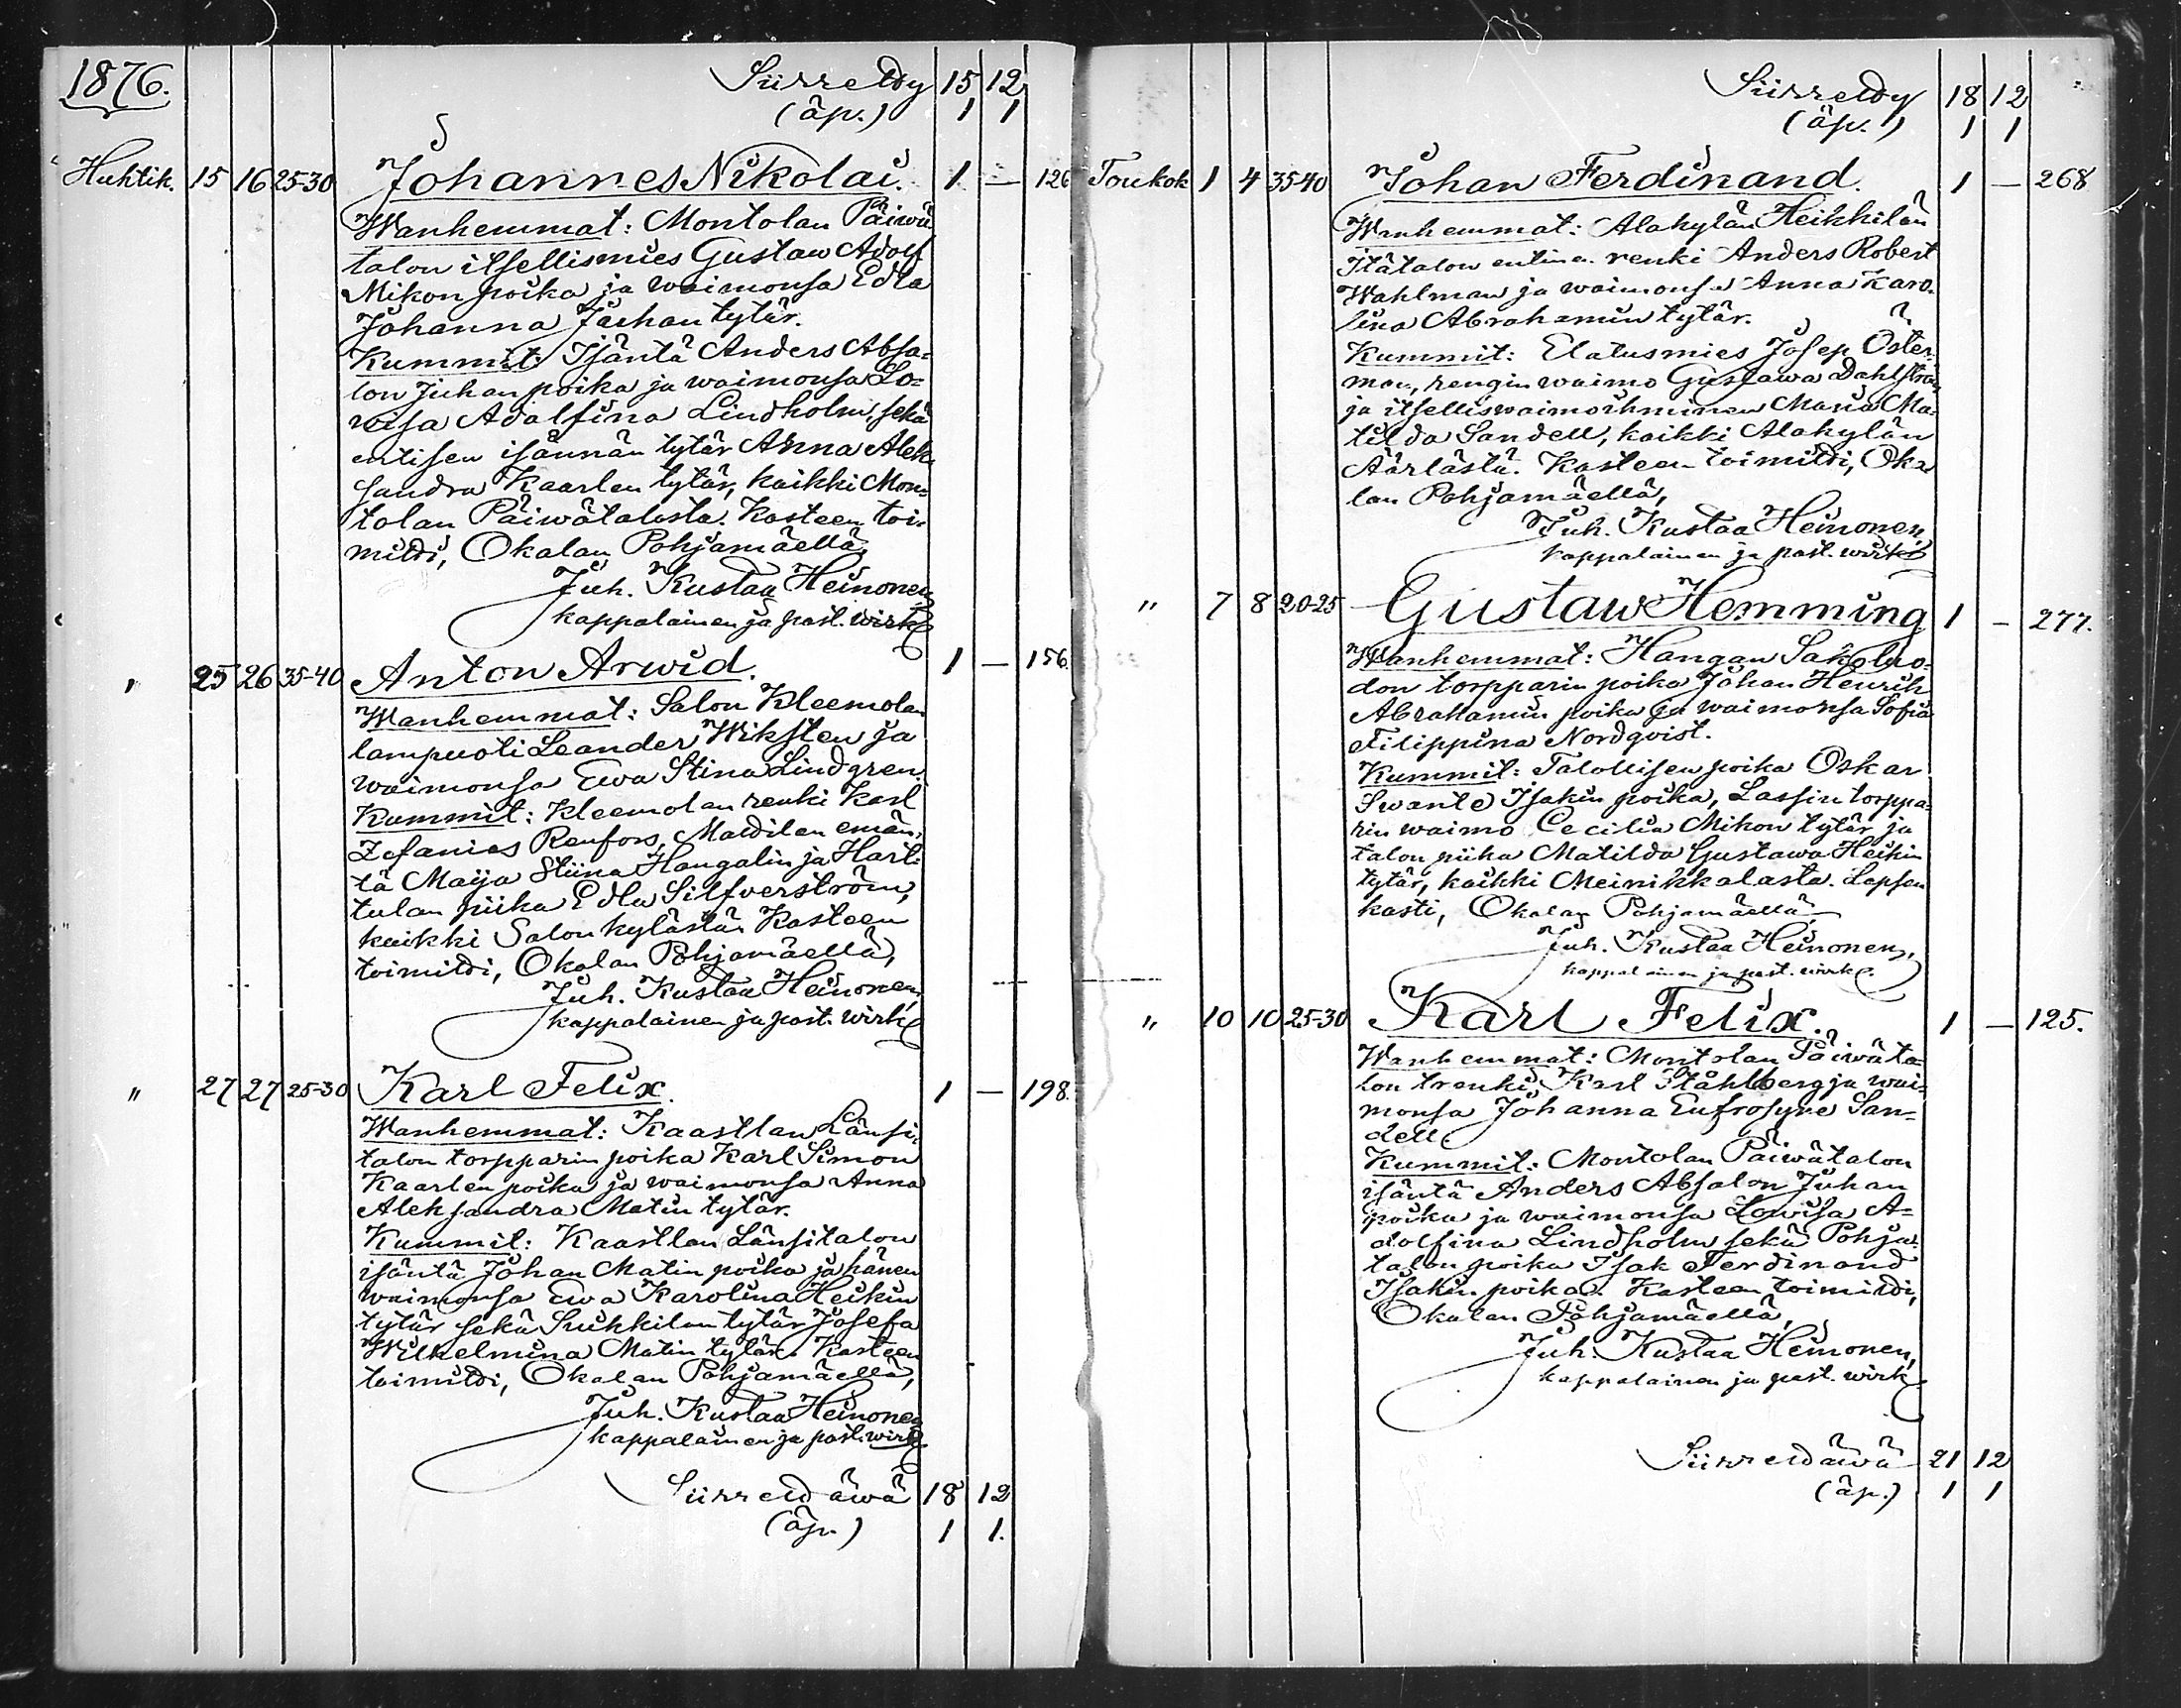 1876.
Siirreldy 15 12
(äp.) 1 1
Huhtik. 15 16 25-30 Johannes Nikolai. 1 — 126
Wanhemmat: Montolan Päiwä
talon itsellismies Gustaw Adolf
Mikon poika ja waimonsa Edla
Johanna Juhan tytär.
Kummit: Isäntä Anders Absa-
lon Juhan poika ja waimonsa Lo-
wisa Adolfina Lindholm, sekä
entisen isännän tytär Anna Alek-
sandra Kaarlen tytär, kaikki Mon-
tolan Päiwätalosta. Kasteen toi-
mitti, Okalan Pohjamäellä,
Juh. Kustaa Heinonen,
kappalainen ja past. wirk.
" 25 26 35-40 Anton Arwid. 1 — 156.
Wanhemmat: Salon Kleemolan
lampuoti Leander Wiksten ja
waimonsa Ewa Stina Lindgren.
Kummit: Kleemolan renki Karl
Zefanias Renfors, Mattilan emän-
tä Maija Stiina Hangalin ja Hart-
tulan piika Edla Silfverström,
kaikki Salon kylästä. Kasteen
toimitti, Okalan Pohjamäellä,
Juh. Kustaa Heinonen,
kappalainen ja past. wirk.
" 27 27 25-30 Karl Felix. 1 — 198.
Wanhemmat: Kaastlan Länsi-
talon torpparin poika Karl Simon
Kaarlen poika ja waimonsa Anna
Aleksandra Matin tytär.
Kummit: Kaastlan Länsitalon
isäntä Johan Matin poika ja hänen
waimonsa Ewa Karolina Heikin
tytär sekä Suikkilan tytär Josefa
Wilhelmina Matin tytär. Kasteen
toimitti, Okalan Pohjamäellä,
Juh. Kustaa Heinonen,
kappalainen ja past. wirk.
Siirreldäwä 18 12
(äp.) 1 1.
Siirreldy 18 12
(äp.) 1 1
Toukok 1 4 35-40 Johan Ferdinand. 1 — 268
Wanhemmat: Alakylän Heikkilän
Itätalon entinen renki Anders Robert
Wahlman ja waimonsa Anna Karo-
lina Abrahamin tytär.
Kummit: Elatusmies Josep Öster-
man, rengin waimo Gustawa Dahlström
ja itselliswaimoihminen Maria Ma-
tilda Sandell, kaikki Alakylän
Äärlästä. Kasteen toimitti, Oka-
lan Pohjamäellä,
Juh. Kustaa Heinonen,
kappalainen ja past. wirk.
" 7 8 20-25 Gustaw Hemming 1 — 277.
Wanhemmat: Hangan Sakoluo-
don torpparin poika Johan Henrik
Abrahamin poika ja waimonsa Sofia
Filippina Nordqvist.
Kummit: Talollisen poika Oskar
Swante Isakin poika, Lassin torppa-
rin waimo Cecilia Mikon tytär ja
talon piika Matilda Gustawa Heikin
tytär, kaikki Meinikkalasta. Lapsen
kasti, Okalan Pohjamäellä
Juh. Kustaa Heinonen,
kappalainen ja past. wirk.
" 10 10 25-30 Karl Felix. 1 — 125.
Wanhemmat: Montolan Päiwäta-
lon trenki Karl Ståhlberg ja wai-
monsa Johanna Eufrosyne San-
dell.
Kummit: Montolan Päiwätalon
isäntä Anders Absalon Juhan
poika ja waimonsa Lowisa A-
dolfina Lindholm sekä Pohja-
talon poika Isak Ferdinand
Isakin poika. Kasteen toimitti,
Okalan Pohjamäellä,
Juh. Kustaa Heinonen,
kappalainen ja past. wirk.
Siirreldäwä 21 12
(äp.) 1 1